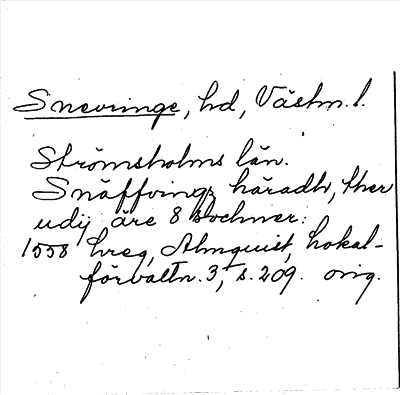 Snevringe, hd, Västm. l.
Strömsholms län.
Snäffringz häradh, ther
udij äre 8 sochner:
1558 hreg, Almquist, Lokal-
förvaltn. 3, s. 209. orig.